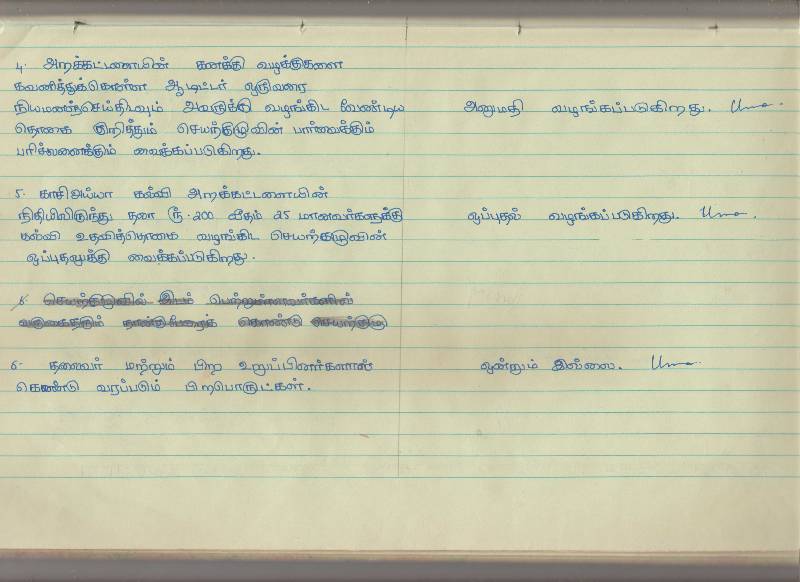 4. அறக்கட்டளையின் கணக்கு வழக்குகளை
கவனித்துக்கொள்ள ஆடிட்டர் ஒருவரை
நியமனஞ்செய்திடவும் அவருக்கு வழங்கிட வேண்டிய அனுமதி வழங்கப்படுகிறது.
தொகை குறித்தும் செயற்குழுவின் பார்வைக்கும்
பரிசீலனைக்கும் வைக்கப்படுகிறது.
5. காசிஅய்யா கல்வி அறக்கட்டளையின்
நிதியிலிருந்து தலா ரூ.200 வீதம் 25 மாணவர்களுக்கு ஒப்புதல் வழங்கப்படுகிறது.
கல்வி உதவித்தொகை வழங்கிட செயற்குழுவின்
ஒப்புதலுக்கு வைக்கப்படுகிறது.
6. தலைவர் மற்றும் பிற உறுப்பினர்களால் ஒன்றும் இல்லை.
கொண்டு வரப்படும் பிறபொருட்கள்.